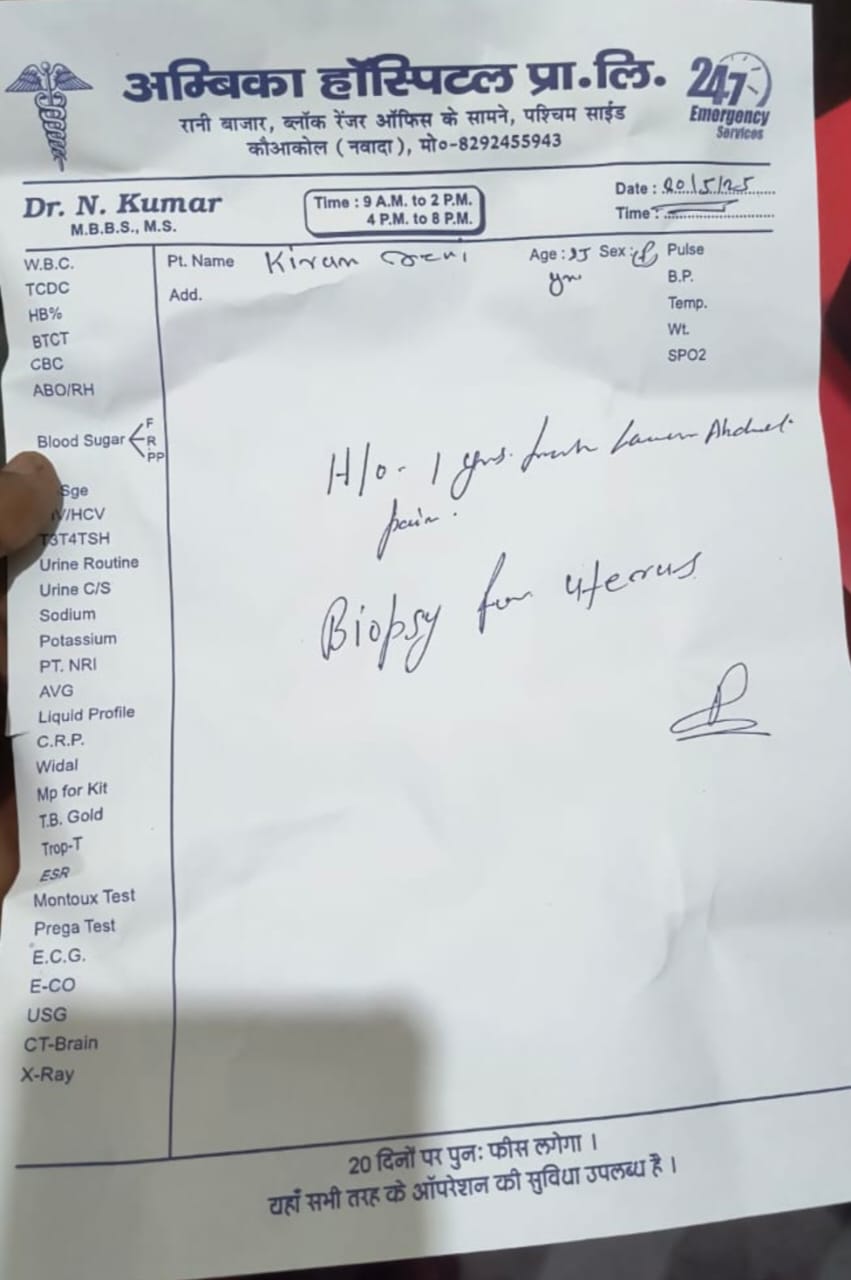 अम्बिका हॉस्पिटल प्रा.लि.
24/7 Emergency Services
रानी बाजार, ब्लॉक रेंजर ऑफिस के सामने, पश्चिम साईड
कौआकोल (नवादा), मो०-8292455943
Dr. N. Kumar
M.B.B.S., M.S.
Time : 9 A.M. to 2 P.M.
4 P.M. to 8 P.M.
Date : 20/5/25
Time :
Pt. Name Kiran Devi
Age : Sex : F
yrs
Add.
Pulse
B.P.
Temp.
Wt.
SPO2
W.B.C.
TCDC
HB%
BTCT
CBC
ABO/RH
Blood Sugar F
R
PP
Sge
V/HCV
T3T4TSH
Urine Routine
Urine C/S
Sodium
Potassium
PT. NRI
AVG
Liquid Profile
C.R.P.
Widal
Mp for Kit
T.B. Gold
Trop-T
ESR
Montoux Test
Prega Test
E.C.G.
E-CO
USG
CT-Brain
X-Ray
H/o - 1 yrs. Lower
pain.
Biopsy for uterus
20 दिनों पर पुनः फीस लगेगा ।
यहाँ सभी तरह के ऑपरेशन की सुविधा उपलब्ध है ।